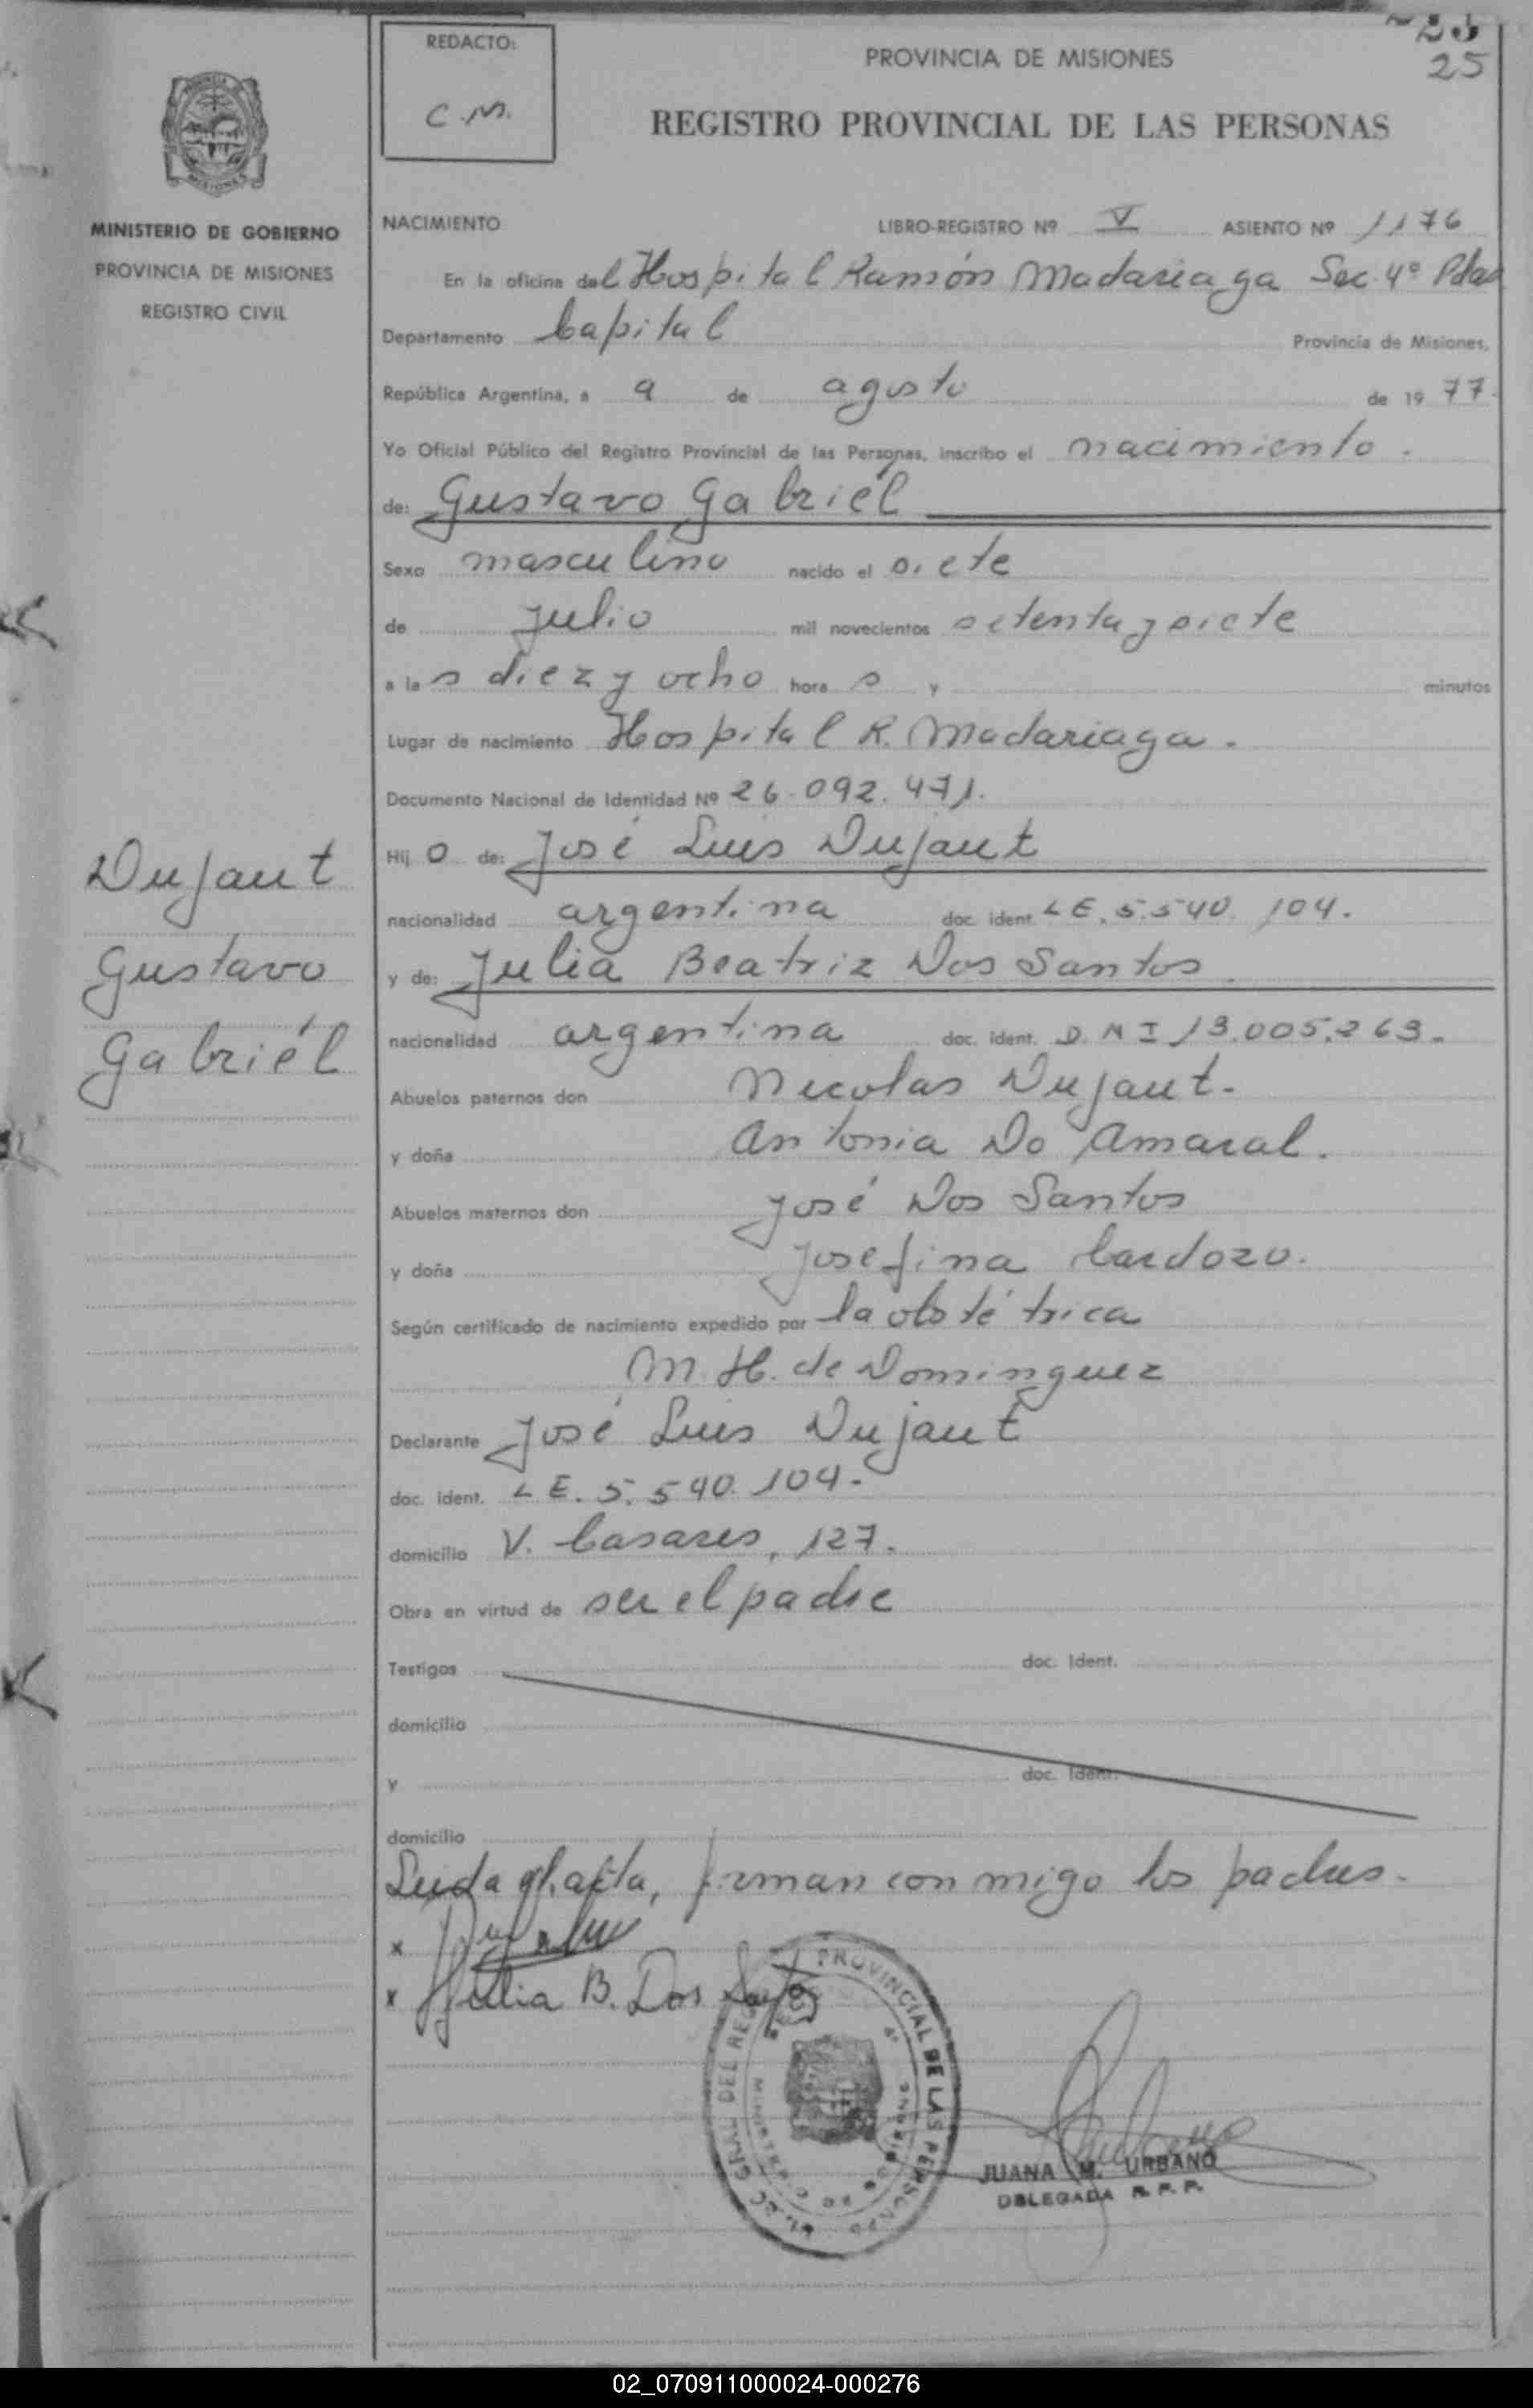 REDACTO:
C.M.
PROVINCIA DE MISIONES
25
REGISTRO PROVINCIAL DE LAS PERSONAS
MINISTERIO DE GOBIERNO
PROVINCIA DE MISIONES
REGISTRO CIVIL
NACIMIENTO LIBRO-REGISTRO Nº V ASIENTO Nº 1176
En la oficina del Hospital Ramón Madariaga Sec. 4º Pdas
Departamento Capital Provincia de Misiones,
República Argentina, a 9 de agosto de 1977.
Yo Oficial Público del Registro Provincial de las Personas, inscribo el nacimiento.
de: Gustavo Gabriél
Sexo masculino nacido el siete
de julio mil novecientos setenta y siete
a las diez y ocho horas y minutos
Lugar de nacimiento Hospital R. Madariaga.
Documento Nacional de Identidad Nº 26.092.471.
Hijo de: José Luis Dujaut
nacionalidad argentina doc. ident. L E. 5.540.104.
y de: Julia Beatriz Dos Santos
nacionalidad argentina doc. ident. D.N I 13.005.263.
Abuelos paternos don Nicolas Dujaut.
y doña Antonia Do Amaral.
Abuelos maternos don José Dos Santos
y doña Josefina Cardozo.
Según certificado de nacimiento expedido por la obstétrica
M. H. de Dominguez
Declarante José Luis Dujaut
doc. ident. L E. 5.540.104.
domicilio V. Casares, 127.
Obra en virtud de ser el padre
Testigos doc. Ident.
domicilio
y doc. Ident.
domicilio
Leida el acta, firman conmigo los padres.
x
x Julia B. Dos Santos
Dujaut
Gustavo
Gabriél
PROVINCIAL DE LAS PERSONAS
GRAL DEL REG
JUANA M. URBANO
DELEGADA R. P. P.
02_070911000024-000276